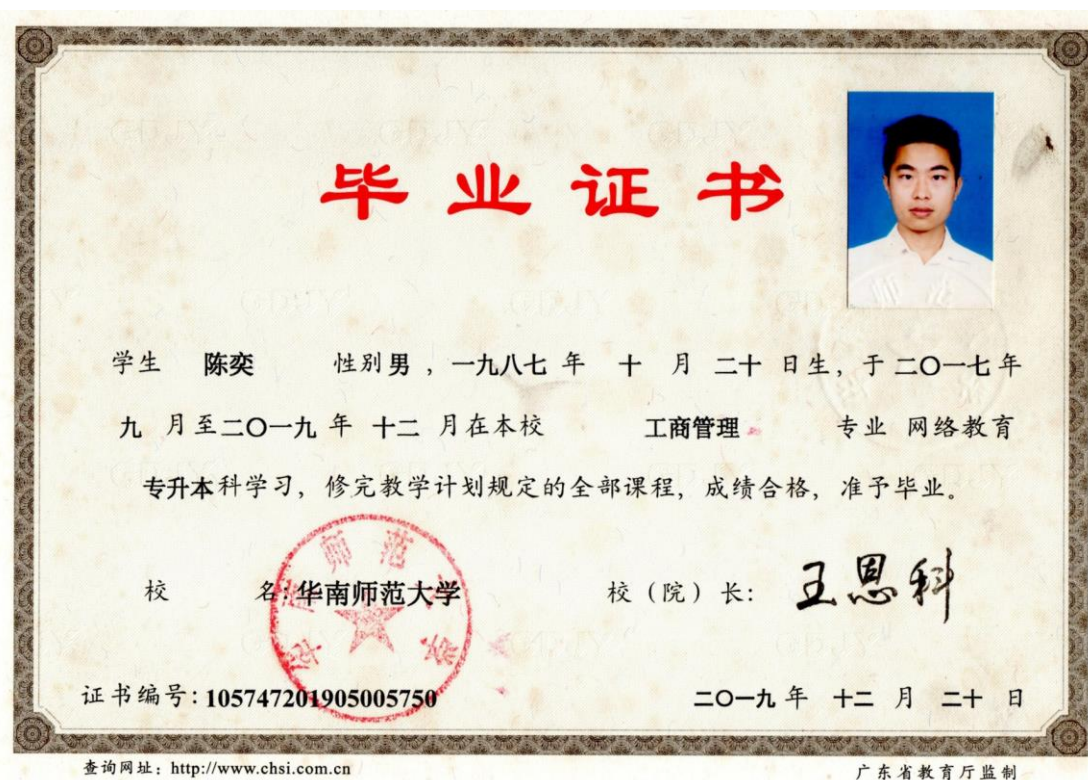 毕业证书
学生 陈奕 性别男，一九八七 年 十 月 二十 日生，于 二〇一七年
九 月至二〇一九 年 十二 月在本校 工商管理 专业 网络教育
专升本科学习，修完教学计划规定的全部课程，成绩合格，准予毕业。
校 名:华南师范大学 校（院）长: 王恩科
证书编号:105747201905005750 二〇一九 年 十二 月 二十 日
查询网址: http://www.chsi.com.cn 广东省教育厅监制